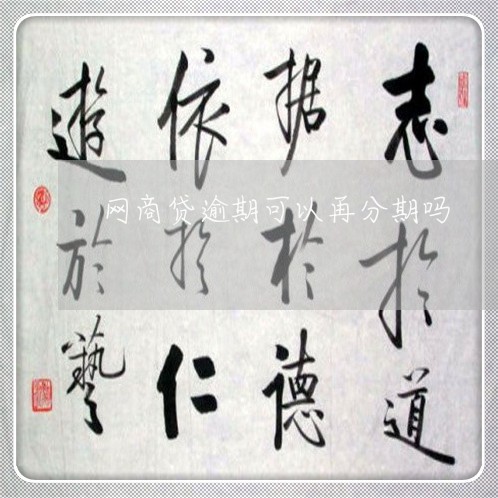 志於道
据於德
依於仁
遊於藝
网商贷逾期可以再分期吗